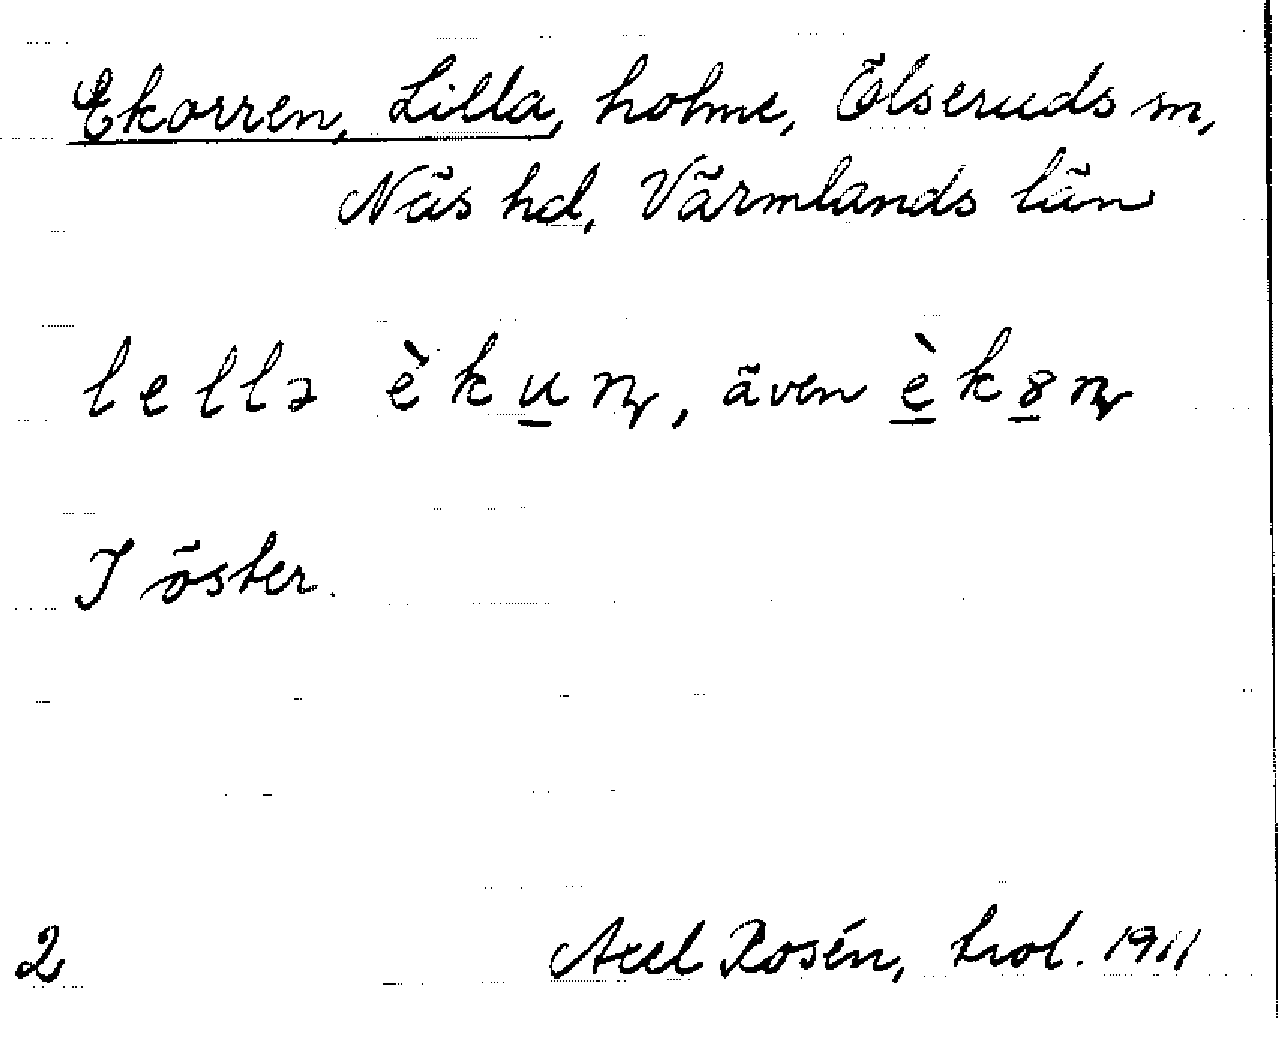 Ekorren, Lilla, holme, Ölseruds sn,
Näs hd, Värmlands län
lellə èkuɳ, även èk8ɳ
I öster.
2 Axel Rosén, trol. 1911